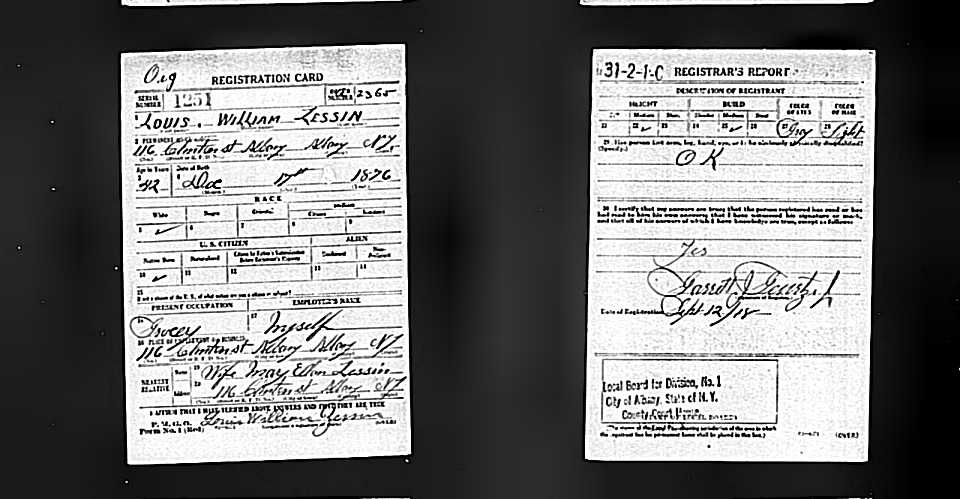 Orig
REGISTRATION CARD
SERIAL NUMBER 1251
ORDER NUMBER 2365
LOUIS. WILLIAM LESSIN
2 PERMANENT HOME ADDRESS
116 Clinton st Albany Albany N.Y.
Age in Years Date of Birth
42 Dec 17th 1876
RACE
White Negro Oriental Indian
Citizen
5 ✓ 6 7 8 9
U. S. CITIZEN ALIEN
Native Born Naturalized Citizen by Father's Naturalization Before Registrant's Majority Declarant Non-Declarant
10 ✓ 11 12 13 14
15
If not a citizen of the U. S., of what nation are you a citizen or subject?
PRESENT OCCUPATION EMPLOYER'S NAME
Grocer Myself
18 PLACE OF EMPLOYMENT OR BUSINESS
116 Clinton st Albany Albany N.Y.
NEAREST RELATIVE
Name Wife May Ellen Lessin
Address 116 Clinton st Albany N.Y.
I AFFIRM THAT I HAVE VERIFIED ABOVE ANSWERS AND THAT THEY ARE TRUE
P. M. G. O.
Form No. 1 (Red) Louis William Lessin (OVER)
31-2-1-C REGISTRAR'S REPORT
DESCRIPTION OF REGISTRANT
HEIGHT BUILD COLOR OF EYES COLOR OF HAIR
Tall Medium Short Slender Medium Stout
21 22 ✓ 23 24 25 ✓ 26 27 Gray 28 Light
29 Has person lost arm, leg, hand, eye, or is he obviously physically disqualified?
(Specify.)
O K
30 I certify that my answers are true; that the person registered has read or has
had read to him his own answers; that I have witnessed his signature or mark,
and that all of his answers of which I have knowledge are true, except as follows:
Yes
Garrett J.
Date of Registration Sept 12/18
Local Board for Division, No. 1
City of Albany, State of N. Y.
County Court House
(The stamp of the Local Board having jurisdiction of the area in which
the registrant has his permanent home shall be placed in this box.)
(OVER)